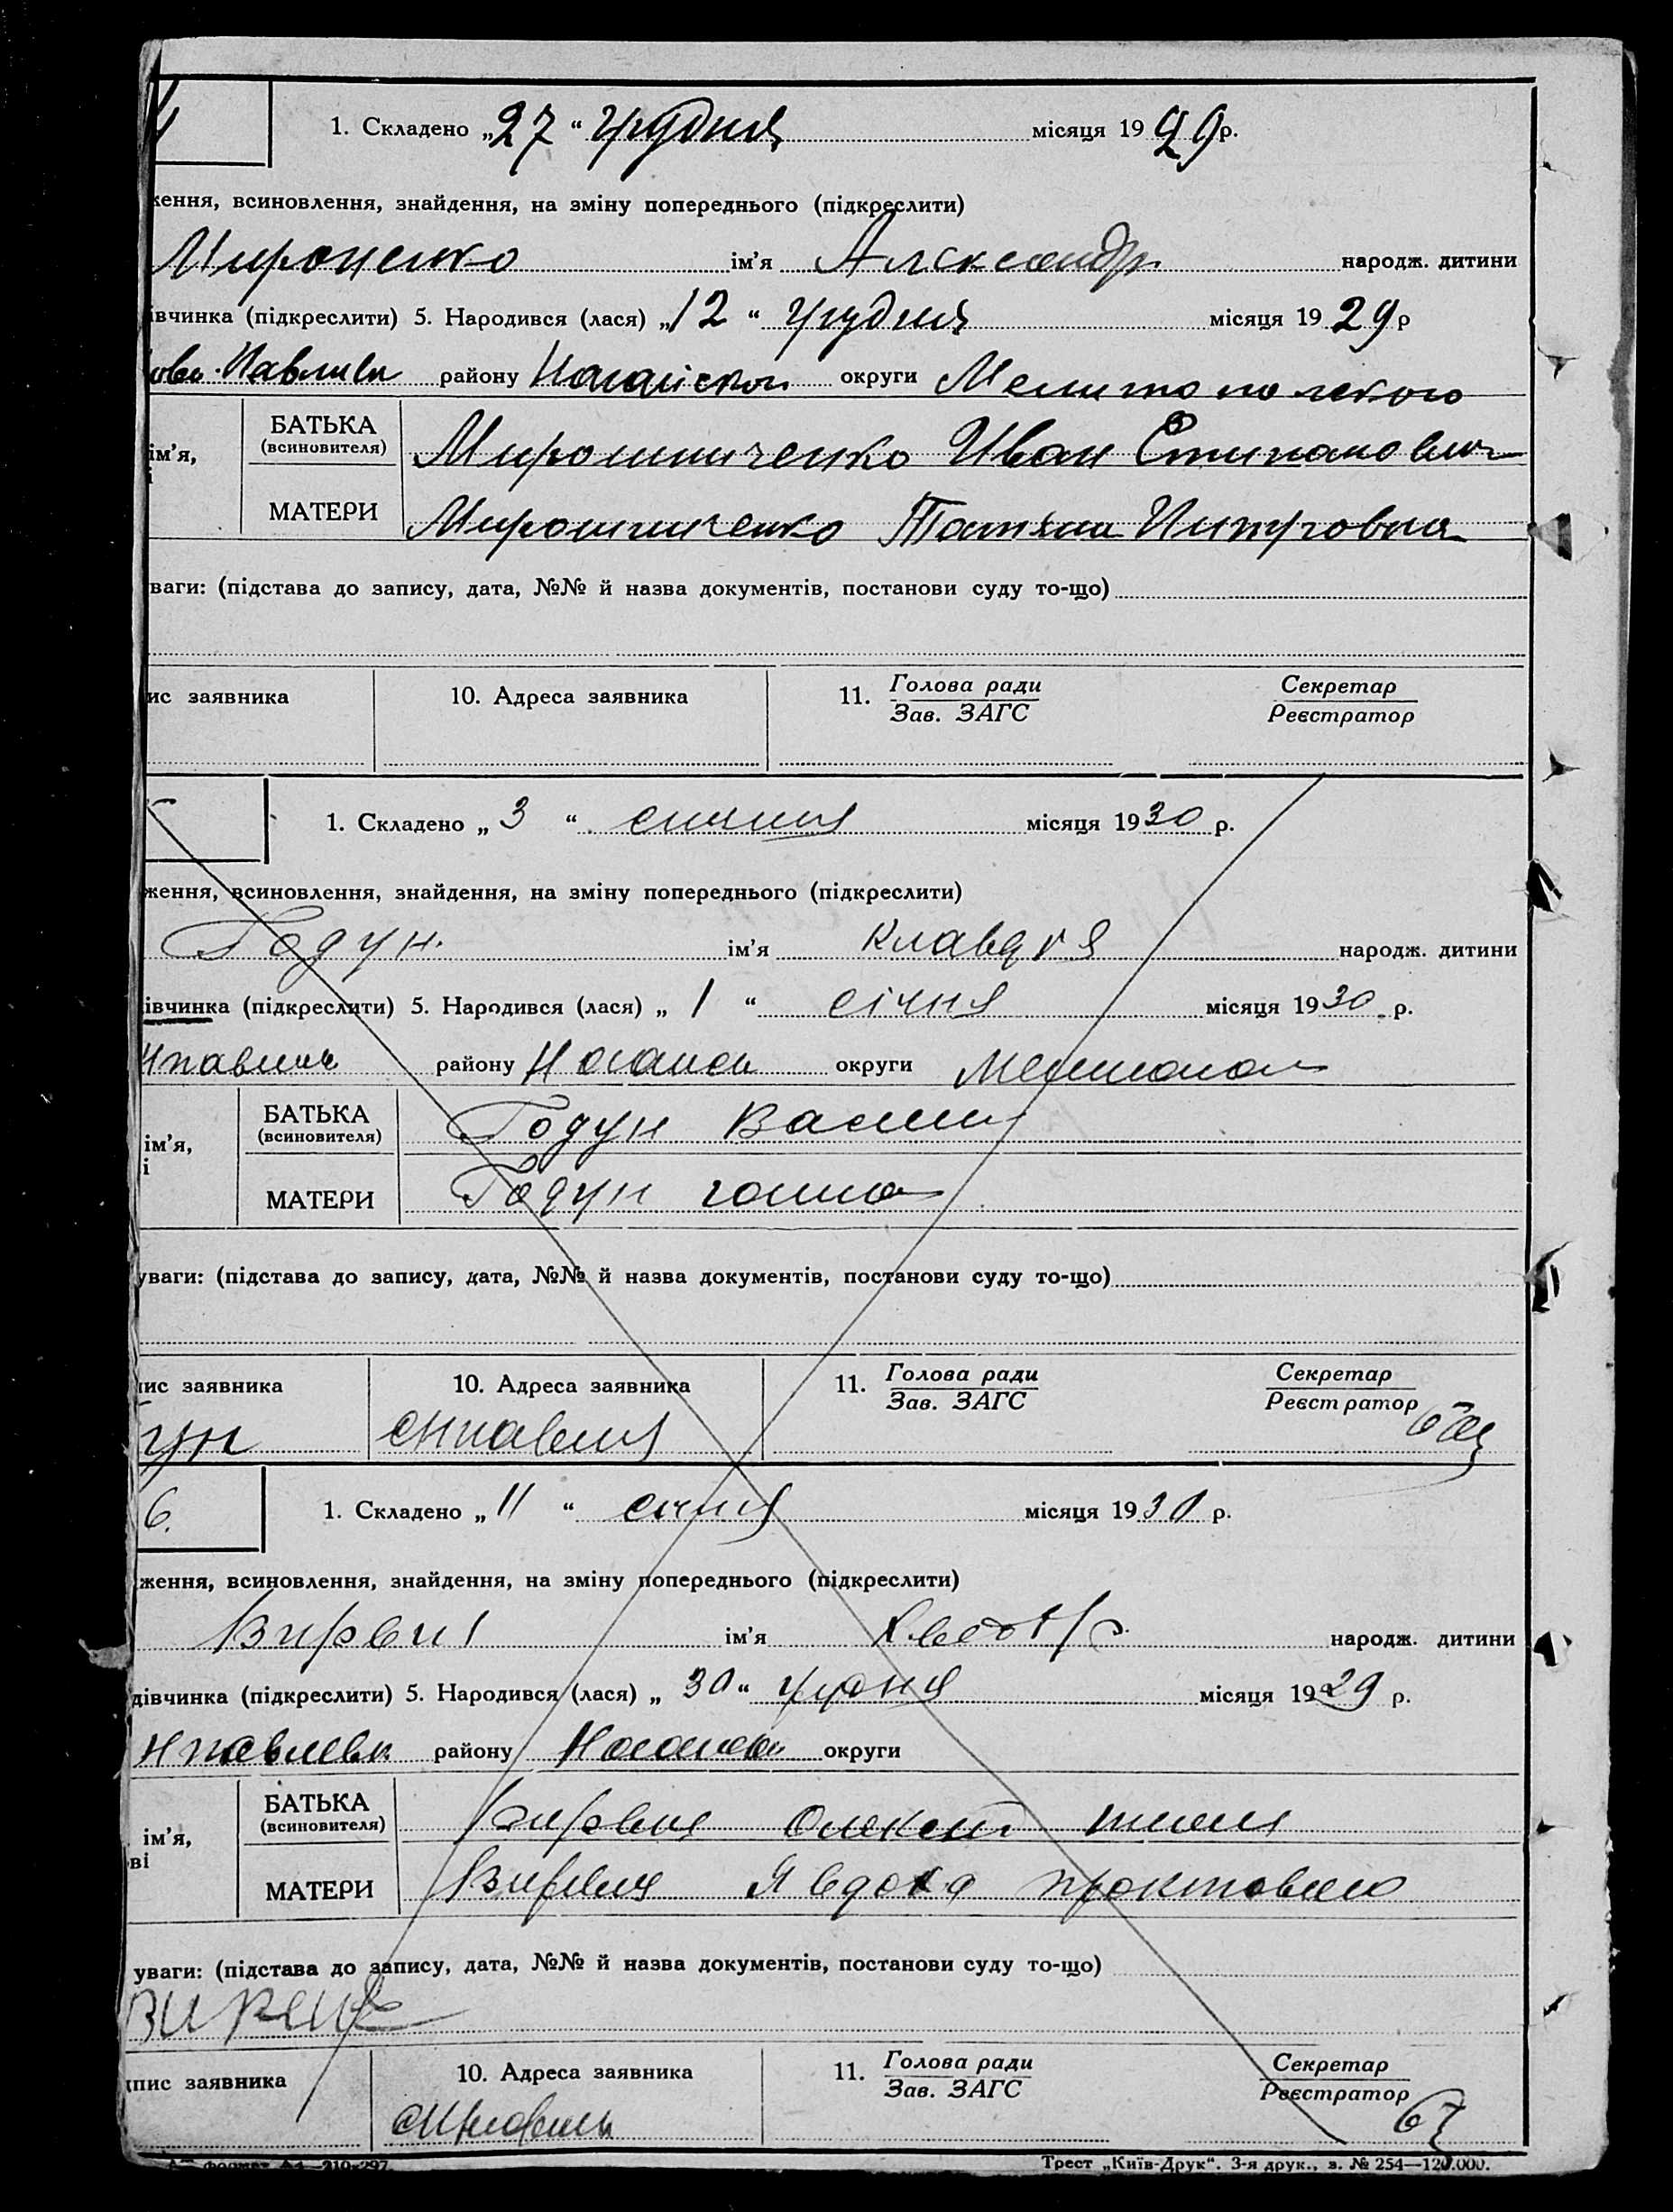 4
1. Складено „27“ грудня місяця 1929р.
ження, всиновлення, знайдення, на зміну попереднього (підкреслити)
Мироненко ім’я Александр народж. дитини
івчинка (підкреслити) 5. Народився (лася) „12“ грудня місяця 1929р
ово-Павливк району Нагайской округи Мелитопольскою
ім’я,
і
БАТЬКА
(всиновителя)
Мирошниченко Иван Степанович
МАТЕРИ
Мирошниченко Татяна Питровна
ваги: (підстава до запису, дата, №№ й назва документів, постанови суду то-що)
ис заявника 10. Адреса заявника 11. Голова ради Секретар
Зав. ЗАГС Реєстратор
1. Складено „3“ січня місяця 1930 р.
ження, всиновлення, знайдення, на зміну попереднього (підкреслити)
Годун ім’я Клавдия народж. дитини
івчинка (підкреслити) 5. Народився (лася) „1“ січня місяця 1930 р.
Нпавлив району Ногайськ округи Мелитопол
ім’я,
і
БАТЬКА
(всиновителя)
Годун Васил
МАТЕРИ
Годун ганна
уваги: (підстава до запису, дата, №№ й назва документів, постанови суду то-що)
ис заявника 10. Адреса заявника 11. Голова ради Секретар
Зав. ЗАГС Реєстратор
дун
6.
1. Складено „11“ січня місяця 1930 р.
ження, всиновлення, знайдення, на зміну попереднього (підкреслити)
ім’я народж. дитини
дівчинка (підкреслити) 5. Народився (лася) „30“ грудня місяця 1929 р.
Нпавлевк району Ногайськ округи
ім’я,
ві
БАТЬКА
(всиновителя)
Олексій
МАТЕРИ
Явдоха
уваги: (підстава до запису, дата, №№ й назва документів, постанови суду то-що)
пис заявника 10. Адреса заявника 11. Голова ради Секретар
Зав. ЗАГС Реєстратор
формат А4—210×297. Трест „Київ-Друк“. 3-я друк., з. № 254—120.000.